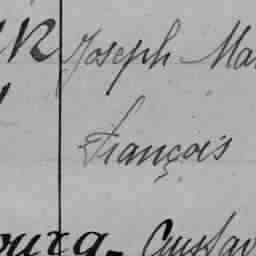 Joseph Ma
François
ourg- Gustav